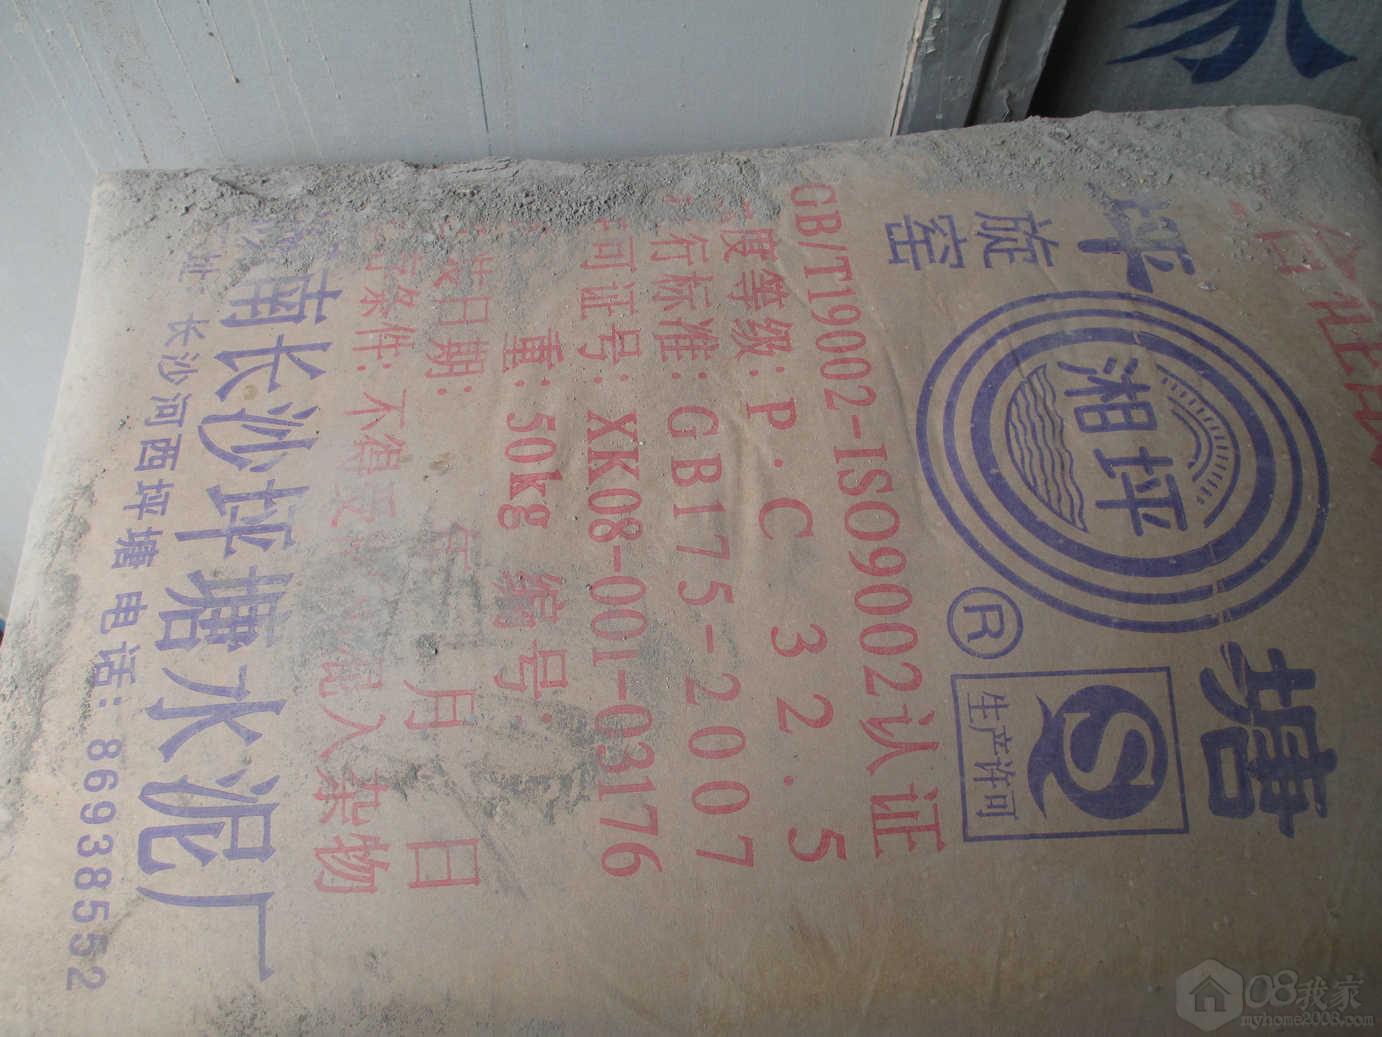 坪
塘
湘坪
®
旋
窑
生产许可
GB/T19002-ISO9002认证
度等级:P.C 32.5
行标准:GB175-2007
可证号:XK08-001-03176
重:50kg 编号:
装日期: 年 月 日
条件:不得受 混入杂物
湖南长沙坪塘水泥厂
址 长沙河西坪塘 电话:86938552
08我家
myhome2008.com